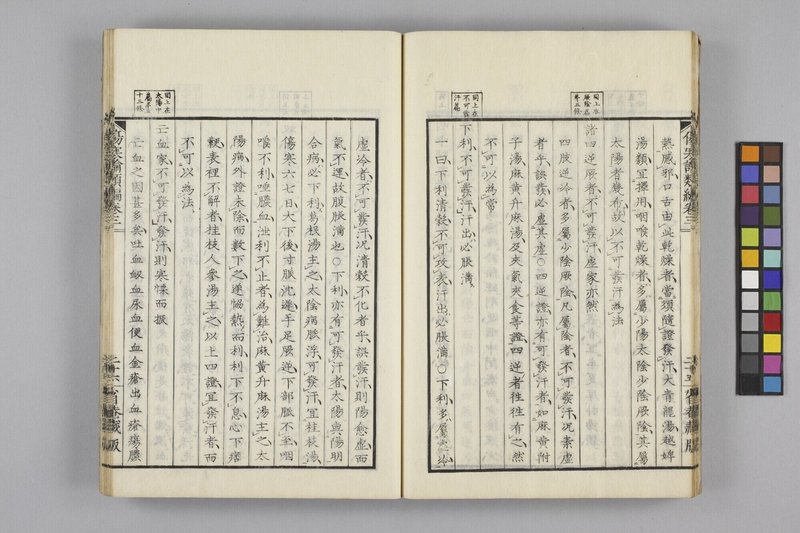 熱感邪口舌由此乾燥者當須隨證發汗大青龍湯越婢
湯類宜擇用咽喉乾燥者多屬少陽太陰少陰厥陰其屬
太陽者幾希故以不可發汗為法
諸四逆厥者不可發汗虛家亦然
四肢逆冷者多屬少陰厥陰凡屬陰者不可發汗況素虛
者乎誤發必虛其虛○四逆證亦有可發汗者如麻黃附
子湯麻黃升麻湯及夾氣夾食等證四逆者往往有之然
不可以為常
下利不可發汗汗出必脹滿
一曰下利清穀不可攻表汗出必脹滿○下利多屬
虛冷者不可發汗況清穀不化者乎誤發汗則陽愈虛而
氣不運故腹脹滿也○下利亦有可發汗者太陽與陽明
合病必下利葛根湯主之太陰病脈浮可發汗宜桂枝湯
傷寒六七日大下後寸脈沈遲手足厥逆下部脈不至咽
喉不利唾膿血泄利不止者為難治麻黃升麻湯主之太
陽病外證未除而數下之遂協熱而利利下不息心下痞
硬表裡不解者桂枝人參湯主之以上四證宜發汗者而
不可以為法
亡血家不可發汗發汗則寒慄而振
亡血之因甚多矣吐血衄血尿血便血金瘡出血瘡瘍膿
同上在
厥陰
第五條
同上在
不可發
汗篇
同上在
太陽中
篇第五
十三條
傷寒論類編卷三
傷寒論類編卷三